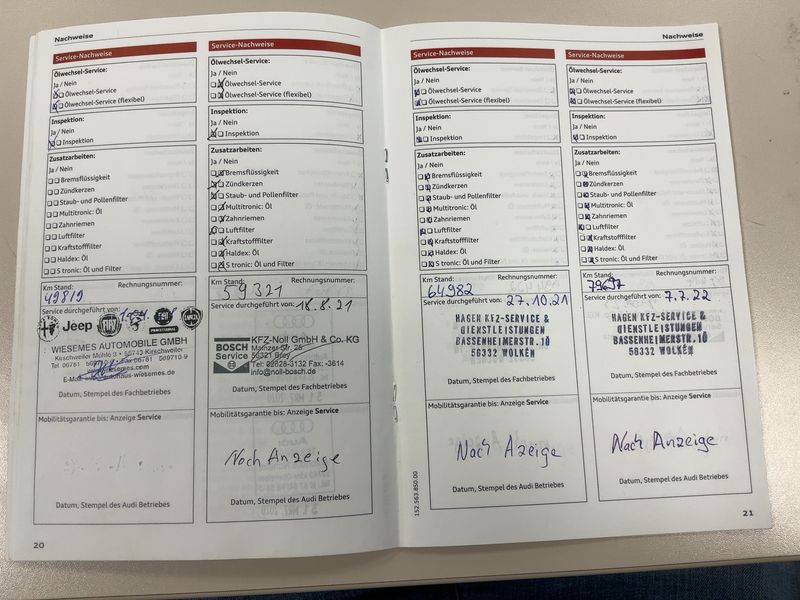 Nachweise
Service-Nachweise
Ölwechsel-Service:
Ja / Nein
Ölwechsel-Service
Ölwechsel-Service (flexibel)
Inspektion:
Ja / Nein
Inspektion
Zusatzarbeiten:
Ja / Nein
Bremsflüssigkeit
Zündkerzen
Staub- und Pollenfilter
Multitronic: Öl
Zahnriemen
Luftfilter
Kraftstofffilter
Haldex: Öl
S tronic: Öl und Filter
Km Stand: Rechnungsnummer:
49819
Service durchgeführt von:
Jeep FIAT LANCIA
PROFESSIONAL
WIESEMES AUTOMOBILE GMBH
Kirschweiler Mühle 3 • 55743 Kirschweiler
Datum, Stempel des Fachbetriebes
Mobilitätsgarantie bis: Anzeige Service
Datum, Stempel des Audi Betriebes
20
Service-Nachweise
Ölwechsel-Service:
Ja / Nein
Ölwechsel-Service
Ölwechsel-Service (flexibel)
Inspektion:
Ja / Nein
Inspektion
Zusatzarbeiten:
Ja / Nein
Bremsflüssigkeit
Zündkerzen
Staub- und Pollenfilter
Multitronic: Öl
Zahnriemen
Luftfilter
Kraftstofffilter
Haldex: Öl
S tronic: Öl und Filter
Km Stand: Rechnungsnummer:
59321
Service durchgeführt von: 18.8.21
BOSCH
Service
KFZ-Noll GmbH & Co. KG
Mainzer Str. 25
56321 Brey
Tel: 02628-3132 Fax: -3614
info@noll-bosch.de
Datum, Stempel des Fachbetriebes
Mobilitätsgarantie bis: Anzeige Service
Noch Anzeige
Datum, Stempel des Audi Betriebes
Nachweise
Service-Nachweise
Ölwechsel-Service:
Ja / Nein
Ölwechsel-Service
Ölwechsel-Service (flexibel)
Inspektion:
Ja / Nein
Inspektion
Zusatzarbeiten:
Ja / Nein
Bremsflüssigkeit
Zündkerzen
Staub- und Pollenfilter
Multitronic: Öl
Zahnriemen
Luftfilter
Kraftstofffilter
Haldex: Öl
S tronic: Öl und Filter
Km Stand: Rechnungsnummer:
64.982
Service durchgeführt von: 27.10.21
HAGEN KFZ-SERVICE &
DIENSTLEISTUNGEN
BASSENHEIMERSTR. 10
56332 WOLKEN
Datum, Stempel des Fachbetriebes
Mobilitätsgarantie bis: Anzeige Service
Nach Azeige
Datum, Stempel des Audi Betriebes
152.563.850.00
Service-Nachweise
Ölwechsel-Service:
Ja / Nein
Ölwechsel-Service
Ölwechsel-Service (flexibel)
Inspektion:
Ja / Nein
Inspektion
Zusatzarbeiten:
Ja / Nein
Bremsflüssigkeit
Zündkerzen
Staub- und Pollenfilter
Multitronic: Öl
Zahnriemen
Luftfilter
Kraftstofffilter
Haldex: Öl
S tronic: Öl und Filter
Km Stand: Rechnungsnummer:
Service durchgeführt von: 7.7.22
HAGEN KFZ-SERVICE &
DIENSTLEISTUNGEN
BASSENHEIMERSTR. 10
56332 WOLKEN
Datum, Stempel des Fachbetriebes
Mobilitätsgarantie bis: Anzeige Service
Nach Anzeige
Datum, Stempel des Audi Betriebes
21